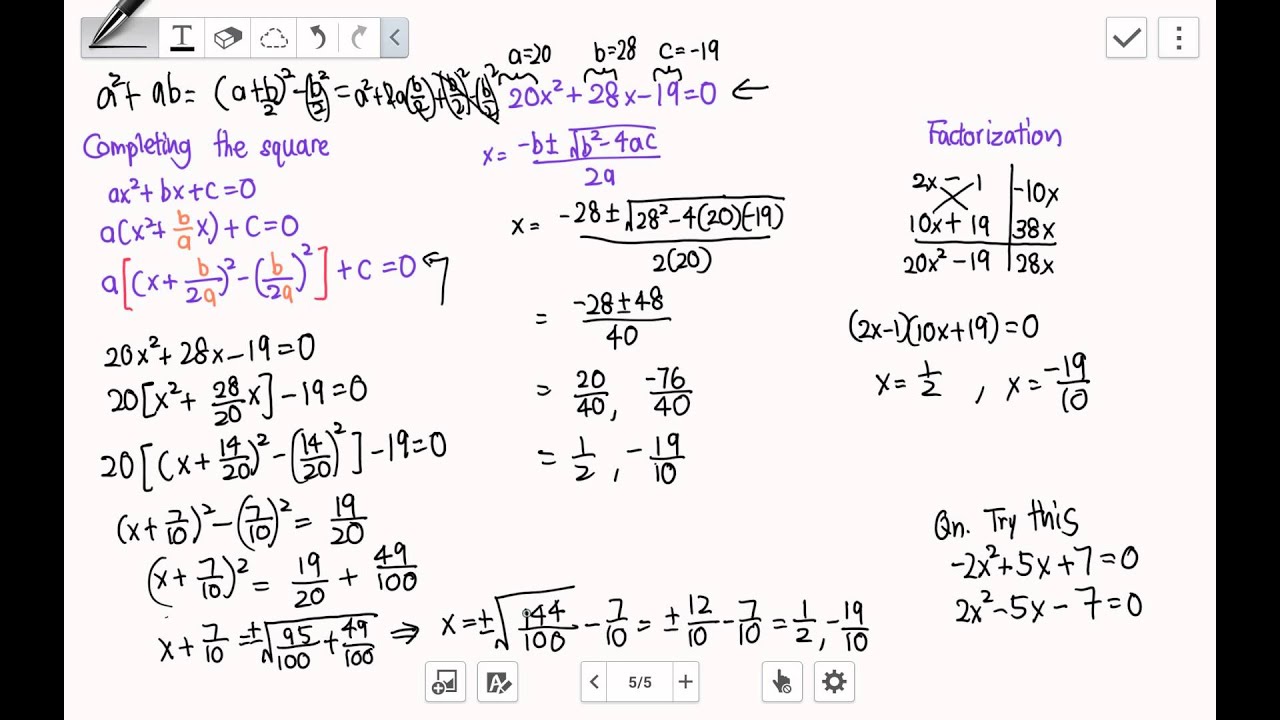 T
a=20 b=28 c=-19
a² + ab = (a+b/2)² - (b/2)² = a² + 2a(b/2) + (b/2)² - (b/2)²
20x² + 28x - 19 = 0 ←
Completing the square
ax² + bx + c = 0
a(x² + b/a x) + c = 0
a[(x + b/2a)² - (b/2a)²] + c = 0
20x² + 28x - 19 = 0
20[x² + 28/20 x] - 19 = 0
20[(x + 14/20)² - (14/20)²] - 19 = 0
(x + 7/10)² - (7/10)² = 19/20
(x + 7/10)² = 19/20 + 49/100
x + 7/10 = ±√(95/100 + 49/100) ⇒ x = ±√(144/100) - 7/10 = ± 12/10 - 7/10 = 1/2, -19/10
x = (-b ± √(b² - 4ac))/2a
x = (-28 ± √(28² - 4(20)(-19)))/2(20)
= (-28 ± 48)/40
= 20/40, -76/40
= 1/2, -19/10
Factorization
2x - 1 | -10x
10x + 19 | 38x
20x² - 19 | 28x
(2x-1)(10x+19) = 0
x = 1/2 , x = -19/10
Qn. Try this
-2x² + 5x + 7 = 0
2x² - 5x - 7 = 0
5/5